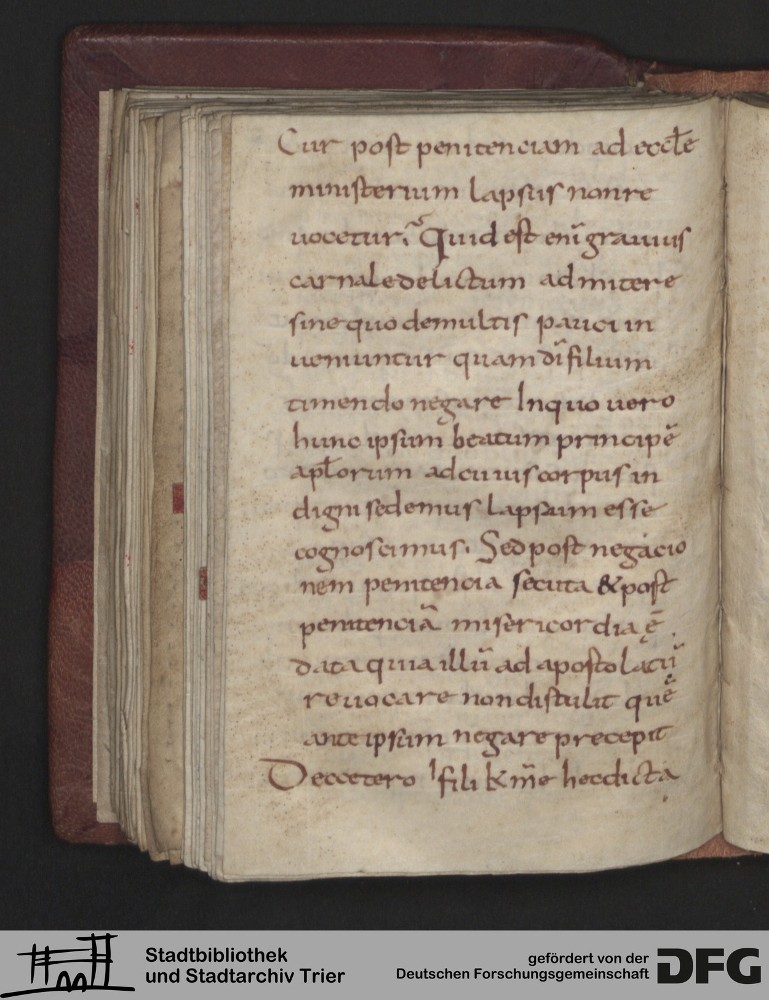 Cur post penitenciam ad eccl̄e
ministerium lapsus non re
uocetur; Quid est enī grauius
carnale delictum admitere
sine quo de multis pauci in
ueniuntur quam dī filium
timendo negare In quo uero
hunc ipsum beatum principē
apl̄orum ad cuius corpus in
digni sedemus lapsum esse
cognoscimus. Sed post negacio
nem penitencia secuta & post
penitenciā misericordia ē
data quia illū ad apostolatū
reuocare non distulit quē
ante ipsum negare precepit
De cetero fili km̄e hec dicta
Stadtbibliothek
und Stadtarchiv Trier
gefördert von der
Deutschen Forschungsgemeinschaft
DFG